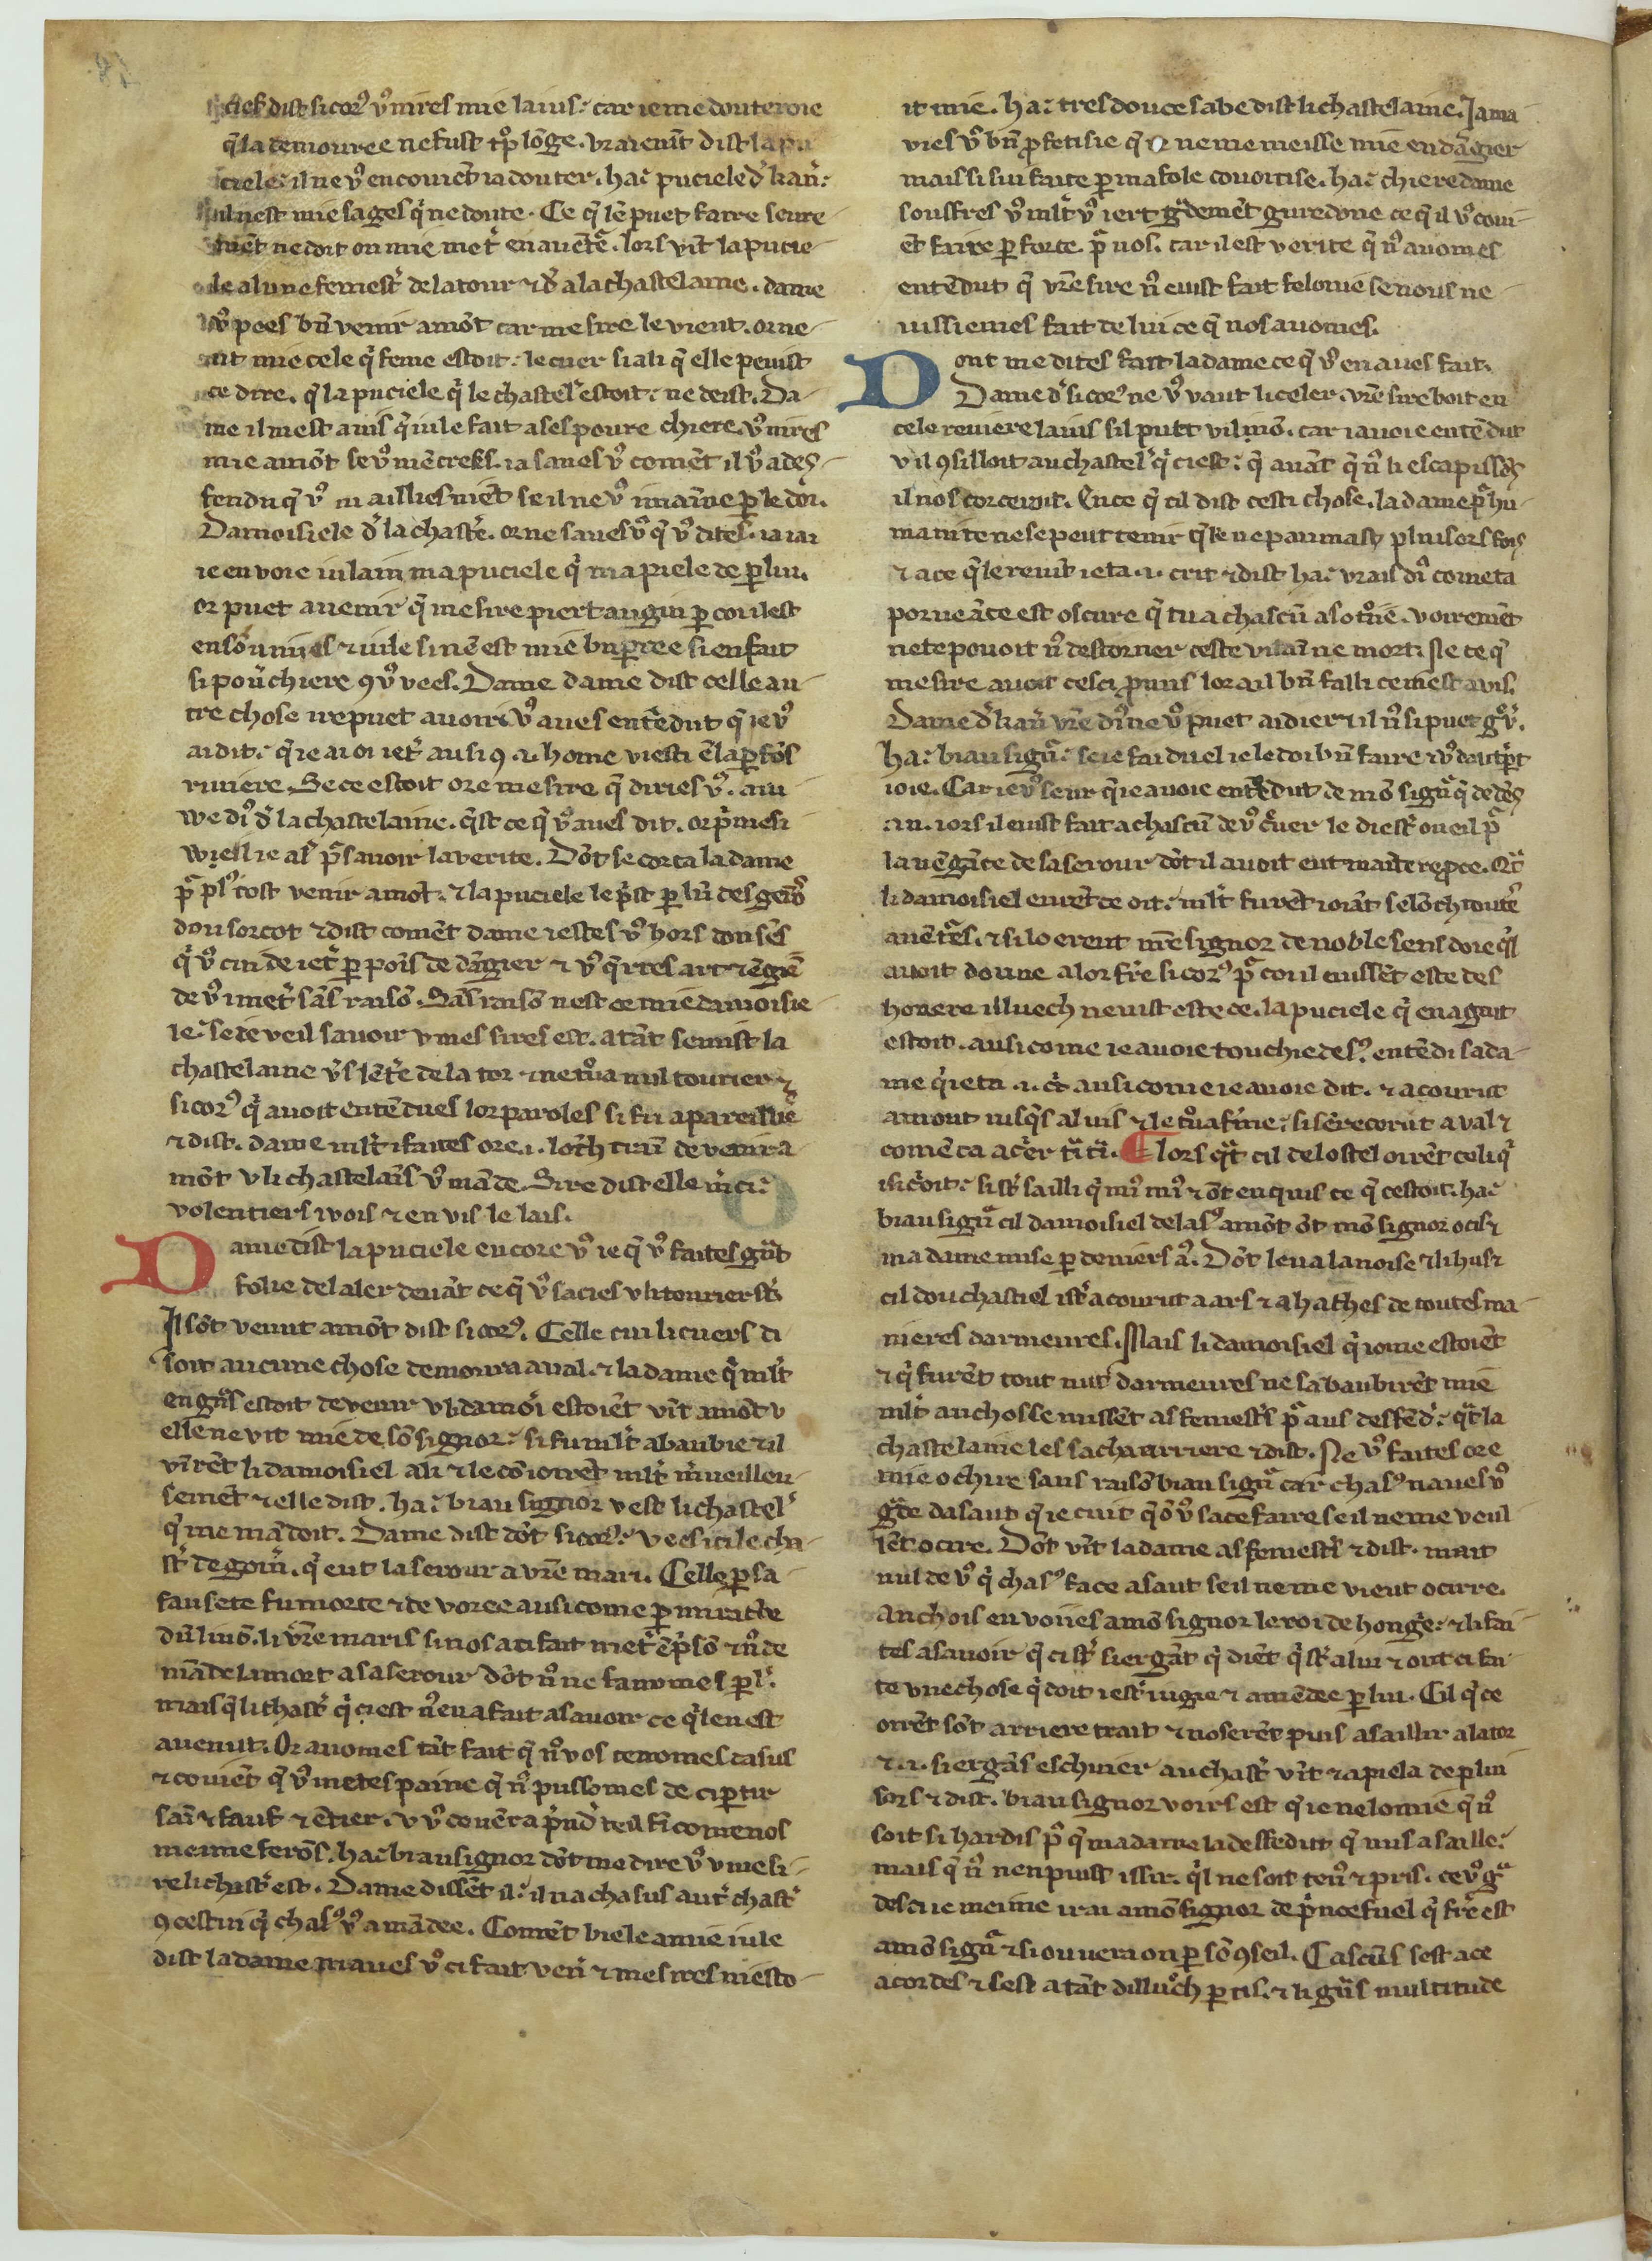 ciel dist sicor⁹ v⁹ nires mie laius. car ie me douteroie
q̃ la demouree ne fust tͬp lōge. vraiem̄t dist la pu
ciele. il ne v⁹ en couiēt ia douter. ha. puciele dͥ kan̄.
il nest mie sages qͥ ne doute. Ce q̃ lē puet faire seure
mēt ne doit on mie metͬ en auētͬe. lors vīt la pucie
le al une fenestͬ de la tour ⁊ dͥ a la chastelaine. dame
v⁹ poes bn̄ venir amōt car me sire le vient. or ne
uit mie cele qͥ feme estoit. le cuer si a li q̃ elle peuist
ce dire. q̃ la puciele qͥ le chastelͬ estoit. ne deist. Da
me il mest auis q̃ iule fait a ses poure chiere. v⁹ nires
mie amōt se v⁹ mē crees. ia saues v⁹ comēt il v⁹ a des
fendu q̃ v⁹ ni aillies niēt se il ne v⁹ i maīne ꝑ le doi.
Damoisiele dͥ la chastͬ. or ne saues v⁹ q̃ v⁹ dites. ia iai
ie en voie iulain ma puciele qͥ mapiele de ꝑ lui.
or puet auenir q̃ me sire piert au giu ꝑ coi il est
ensōnnies ⁊ iule si nē est mie bn̄ paree si en fait
si pour̄ chiere ꝯ v⁹ vees. Dame dame dist celle au
tre chose i repuet auoir. v⁹ aues entēdut q̃ ie v⁹
ai dit. q̃ ie ai oi ietͬ ausi ꝯ .i. home viesti ē la ꝑfōs
riuiere. Se ce estoit ore me sire q̃ diries v⁹. aiu
we di⁹ dͥ la chastelaine. q̃st ce q̃ v⁹ aues dit. or pͥmes i
weil ie alͬ pͬ sauoir la verite. Dōt se corca la dame
pͬ pl⁹ tost venir amōt. ⁊ la puciele le pͥst ꝑ lun des gerōs
dou sorcot ⁊ dist comēt dame iestes v⁹ hors dou sēs
qͥ v⁹ cui de ietͬ ꝑ pōis de dāgier ⁊ v⁹ q̃rres art ⁊ ēgiē
de v⁹ i metͬ sās raisō. Sās raisō nest ce mie damoisie
le. se ie veil sauoir v mes sires est. atāt semist la
chastelaine vͬs lētͬe de la tor ⁊ ne tͬua nul tourier ⁊
sicor⁹ qͥ auoit entēdues lor paroles si fu apareillie
⁊ dist. dame ml̄t i faites ore .i. lōch traī de venir a
mōt v li chastelaīs v⁹ māde. Sire dist elle m̄ci.
volentiers i vois ⁊ en vis le lais.
Dame dist la puciele encore v⁹ ie q̃ v⁹ faites gͬāt
folie del aler deuāt ce q̃ v⁹ sacies v li tourier sͭ
Il sōt venut amōt dist sicor⁹. Celle cui li cuers di
soit aucune chose demoura aual. ⁊ la dame qͥ ml̄t
en gͬās estoit de venir v li damoi estoiēt vīt amōt v
elle ne vit mie de sō signor. si fu ml̄t abaubie ⁊ il
vīrēt li damoisiel a li ⁊ le cōioirēt ml̄t m̄ueilleu
semēt ⁊ elle dist. ha. biau signor v est li chastelͬ
q̃ me mādoit. Dame dist dōt sicor⁹. vees ici le cha
stͬ de gom̄. qͥ eut la serour a vr̄e mari. Celle ꝑ sa
fausete fu morte ⁊ de voree ausi come ꝑ miracle
dun liuō. li vr̄e maris si nos a ci fait metͬ ē pͥsō ⁊ n⁹ de
māde la mort a sa serour dōt n⁹ ne sauomes ꝑlͬ.
mais q̃ li chastͬ qͥ ci est n⁹ en a fait a sauoir ce q̃ len est
auenut. Or auomes tāt fait q̃ n⁹ vos tenomes ca sus
⁊ couiēt q̃ v⁹ metes paine q̃ n⁹ pussomes de ci ꝑtir
sain ⁊ sauf ⁊ ētier. v v⁹ couēra pͥndͬ teil fī come nos
meime ferōs. ha. biau signor dōt me dire v⁹ v mesi
re li chastͬ est. Dame dissēt il. il na cha sus autͬ chastͬ
ꝯ cestui qͥ chas⁹ v⁹ a mādee. Comēt biele amie iule
dist la dame maues v⁹ ci fait venͬ ⁊ mes sires niesto
it mie. ha. tres douce sabe dist li chastelaine. Jama
vies v⁹ bn̄ ꝓfetisie q̃ ne me meisse mie en dāgier
mais si sui faite ꝑ ma fole couoitise. ha. chiere dame
souffres v⁹ ml̄t v⁹ iert gͬdemēt guredōne ce q̃ il v⁹ coui
et faire ꝑ force pͬ nos. car il est verite q̃ n⁹ auomes
entēdut q̃ vr̄e sire n⁹ euist fait felonie se nous ne
uissiemes fait de lui ce q̃ nos auomes.
Dont me dites fait la dame ce q̃ v⁹ en aues fait.
Dame dͥ sicor⁹ ne v⁹ vaut li celer. vr̄e sire boit en
cele reuiere lauis sil putt vilmō. car iauoie entēdut
v il ꝯsilloit au chastelͬ qͥ ci est. q̃ auāt q̃ n⁹ li escapissōs
il nos torceroit. En ce q̃ cil dist cesti chose. la dame pͬ hu
manite ne se peut tenir q̃ le ne paumast pluisors fois
⁊ a ce q̃ le reuīt ieta .i. crit ⁊ dist ha. vrais di⁹ come ta
porueāce est oscure q̃ tu a chascū as otͬie. voiremēt
ne te pouoit n⁹ destorner ceste vilaīne mort. Ne ce q̃
me sire auoit ces ci ꝓmis lor a il bn̄ falli ce mest auis.
Dame dͥ kan̄ vr̄e di⁹ ne v⁹ puet aidier ⁊ il n⁹ si puet gͬeu.
ha. biau sign̄. se ie fai duel ie le doi bn̄ faire ⁊ v⁹ dautͬpt
ioie. Car ie v⁹ seur q̃ ie auoie entēdut de mō sign̄ q̃ dedēs
.iii. iors il euist fait a chascū de v⁹ cͬuer le diestͬ oueil pͬ
la vēgāce de sa serour dōt il auoit eut mainte reꝓce. Qͣt
li damoisiel eurēt ce oit. ml̄t furēt ioiāt selōch toute
auētͬes. ⁊ si loerent nr̄e signor de noble sens doie q̃l
auoit doune a lor fr̄e sicor⁹ pͬ coi il euissēt este des
honere illuech neuist este ce. la puciele qͥ en agait
estoit. ausi come ie auoie touchie des⁹. entēdi sa da
me qͥ ieta .i. cͬi ausi come ie auoie dit. ⁊ acourut
amont iusqͣs al uis ⁊ le tͬua fͬme. si se recorut aual ⁊
comēca a cͬier tͬi tͬi. ¶ lors qͣt cil de lostel oirēt celi qͥ
isi cͬioit. si sͭ sailli qͥ mi⁹ mi⁹ ⁊ ōt enquis ce q̃ cestoit. ha.
biau sign̄ cil damoisiel de las⁹ amōt ōt mō signor ocis ⁊
ma dame mise ꝑ deuiers a⁹. Dōt leua la noise ⁊ li hus ⁊
cil dou chastiel isͭ acourut a ars ⁊ a haches de toutes ma
nieres darmeures. Mais li damoisiel qͥ ione estoiēt
⁊ qͥ furēt tout nut darmeures ne sabaubirēt mie
ml̄t anchos se missēt as fenestͬs pͬ aus desfēdͬ. qͣt la
chastelaine les sacha arriere ⁊ dist. Ne v⁹ faites ore
mie ochire sans raisō biau sign̄ car chas⁹ naues v⁹
gͬde dasaut q̃ ie cuit q̃ ō v⁹ sace faire se il ne me veul
lēt ocire. Dōt vīt la dame as fenestͬs ⁊ dist. mait
nul de v⁹ qͥ chas⁹ face asaut se il ne me vieut ocirre.
Anchois en voues a mō signor le roi de hongͬe. ⁊ li fai
tes asauoir q̃ ci sͭ siergāt qͥ diēt qͥ sͭ a lui ⁊ ont ci fa
te vne chose qͥ doit iestͬ iugie ⁊ amēdee ꝑ lui. Cil qͥ ce
oirēt sōt arriere trait ⁊ noserēt puis asaillir a la tor
⁊ .i. siergās eschiuier au chastͬ vīt ⁊ apiela de plui
sors ⁊ dist. biau signor voirs est q̃ ie ne lo mie q̃ n⁹
soit si hardis pͬ q̃ ma dame la desfēdut q̃ nus asaille.
mais q̃ n⁹ nen puist issir. q̃l ne soit ten⁹ ⁊ pris. ce v⁹ gͬa
des ci ie meime irai a mō signor de pͥnce fuel qͥ fr̄e est
a mō sign̄ ⁊ si ouuera on ꝑ sō ꝯseil. Cascūs sest a ce
acordes ⁊ sest atāt dilluch partis. ⁊ li gͬās multitude